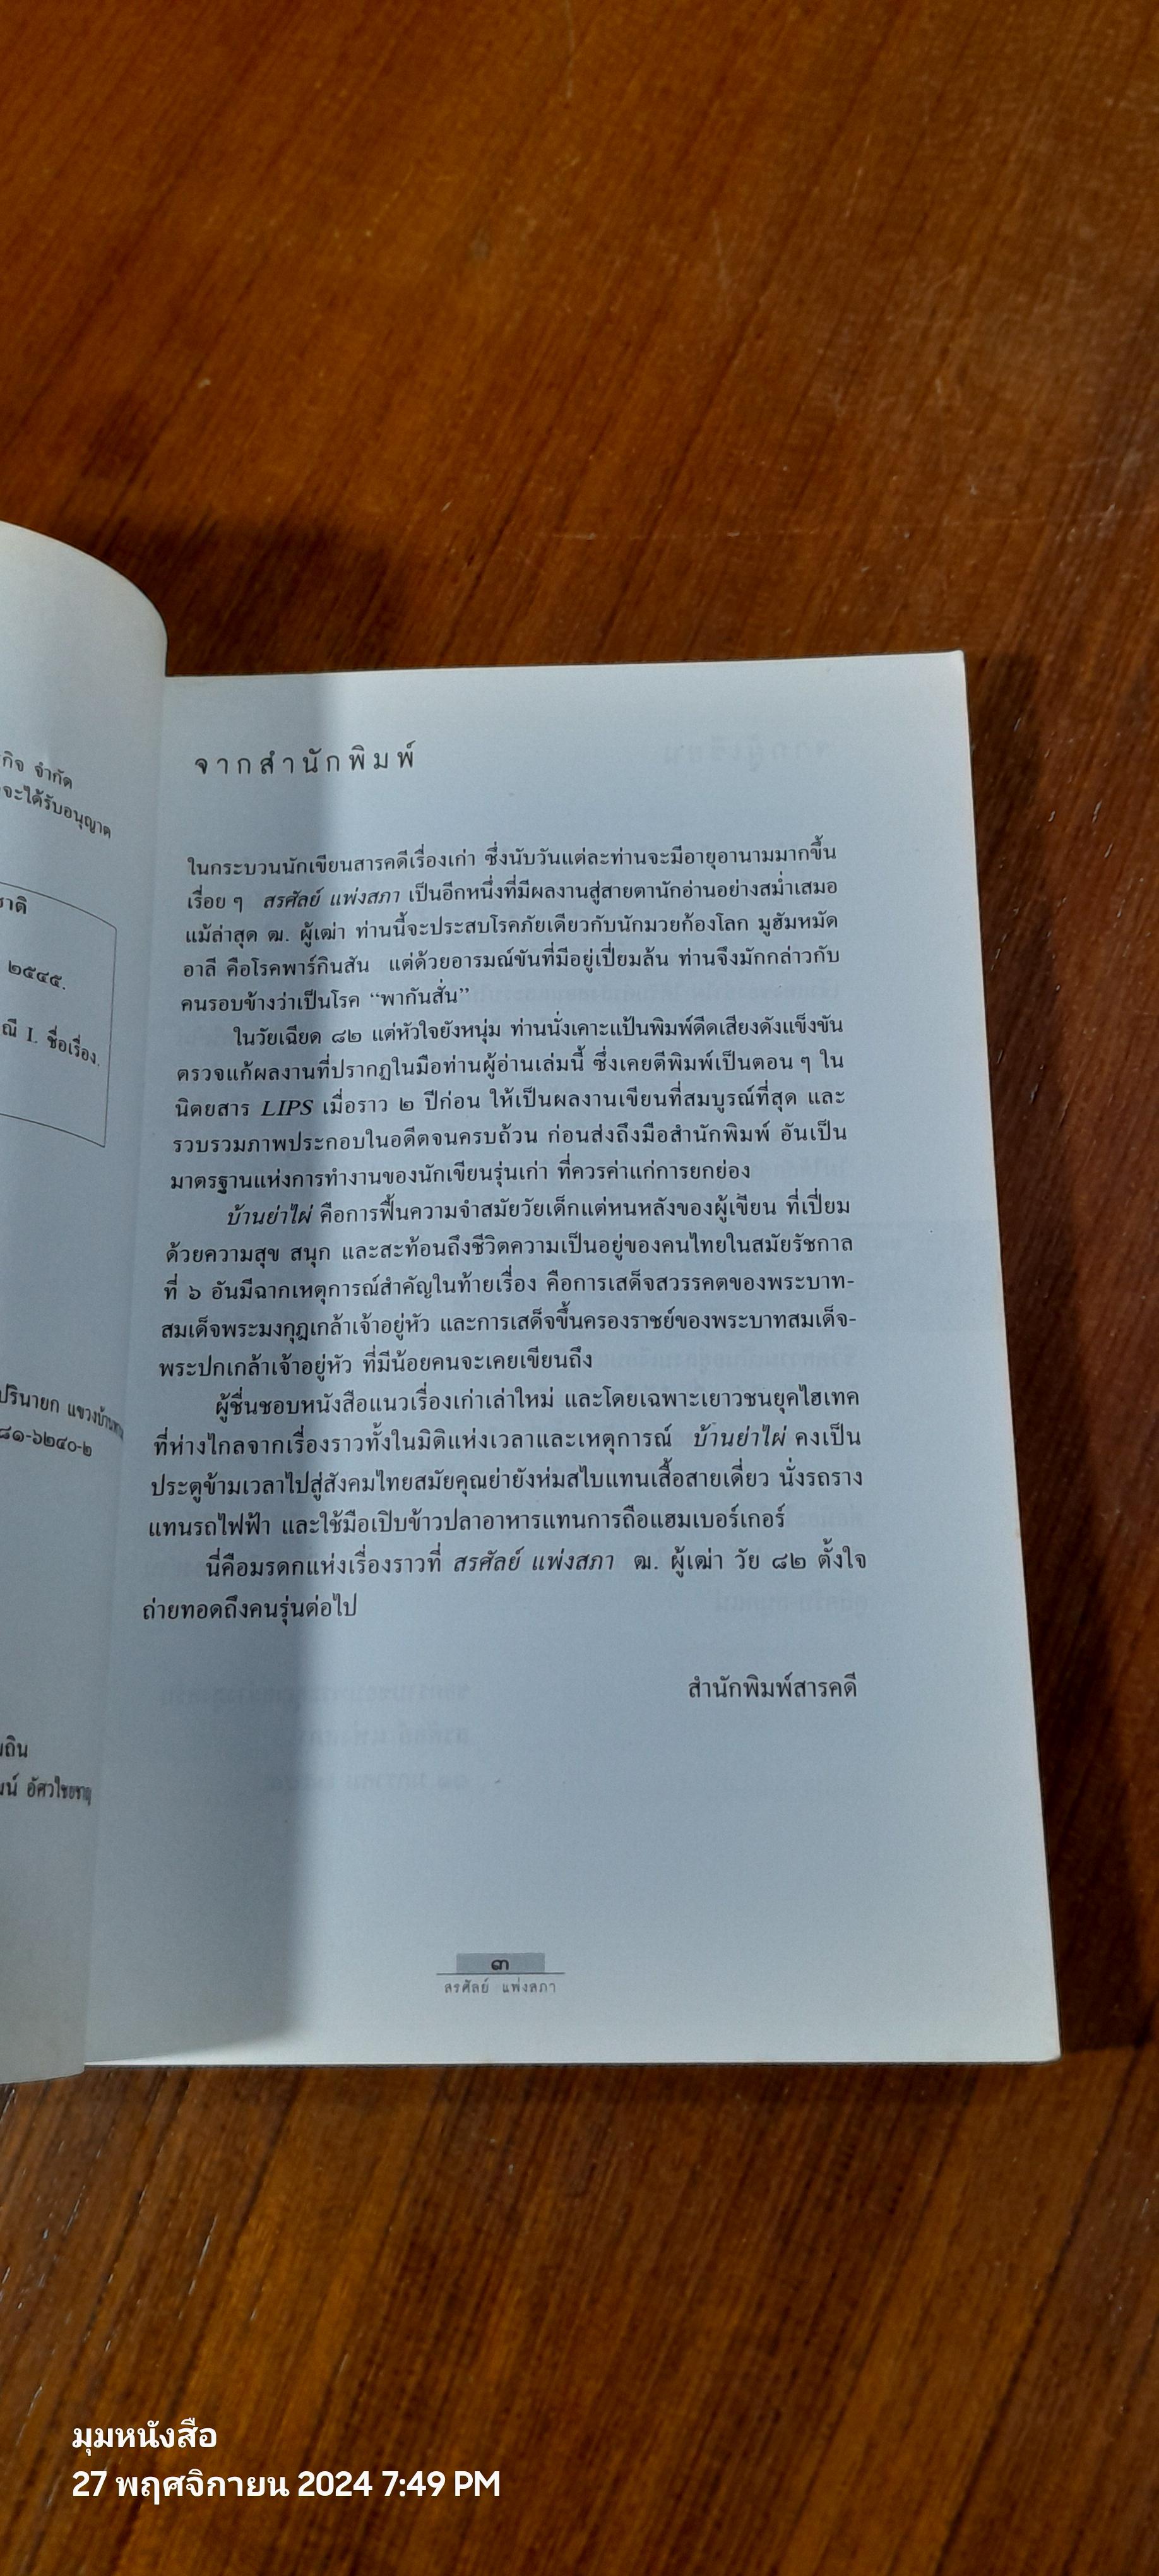 กิจ จำกัด
จะได้รับอนุญาต
าติ
๒๕๔๕.
ณี I. ชื่อเรื่อง.
ปรินายก แขวง
๘๑-๖๒๔๐-๒
ถิน
ฒน์ อัศวไชยชาญ
จากสำนักพิมพ์
ในกระบวนนักเขียนสารคดีเรื่องเก่า ซึ่งนับวันแต่ละท่านจะมีอายุอานามมากขึ้น
เรื่อย ๆ สรศัลย์ แพ่งสภา เป็นอีกหนึ่งที่มีผลงานสู่สายตานักอ่านอย่างสม่ำเสมอ
แม้ล่าสุด ฒ. ผู้เฒ่า ท่านนี้จะประสบโรคภัยเดียวกับนักมวยก้องโลก มูฮัมหมัด
อาลี คือโรคพาร์กินสัน แต่ด้วยอารมณ์ขันที่มีอยู่เปี่ยมล้น ท่านจึงมักกล่าวกับ
คนรอบข้างว่าเป็นโรค “พากันสั่น”
ในวัยเฉียด ๘๒ แต่หัวใจยังหนุ่ม ท่านนั่งเคาะแป้นพิมพ์ดีดเสียงดังแข็งขัน
ตรวจแก้ผลงานที่ปรากฏในมือท่านผู้อ่านเล่มนี้ ซึ่งเคยตีพิมพ์เป็นตอน ๆ ใน
นิตยสาร LIPS เมื่อราว ๒ ปีก่อน ให้เป็นผลงานเขียนที่สมบูรณ์ที่สุด และ
รวบรวมภาพประกอบในอดีตจนครบถ้วน ก่อนส่งถึงมือสำนักพิมพ์ อันเป็น
มาตรฐานแห่งการทำงานของนักเขียนรุ่นเก่า ที่ควรค่าแก่การยกย่อง
บ้านย่าไผ่ คือการฟื้นความจำสมัยวัยเด็กแต่หนหลังของผู้เขียน ที่เปี่ยม
ด้วยความสุข สนุก และสะท้อนถึงชีวิตความเป็นอยู่ของคนไทยในสมัยรัชกาล
ที่ ๖ อันมีฉากเหตุการณ์สำคัญในท้ายเรื่อง คือการเสด็จสวรรคตของพระบาท-
สมเด็จพระมงกุฎเกล้าเจ้าอยู่หัว และการเสด็จขึ้นครองราชย์ของพระบาทสมเด็จ-
พระปกเกล้าเจ้าอยู่หัว ที่มีน้อยคนจะเคยเขียนถึง
ผู้ชื่นชอบหนังสือแนวเรื่องเก่าเล่าใหม่ และโดยเฉพาะเยาวชนยุคไฮเทค
ที่ห่างไกลจากเรื่องราวทั้งในมิติแห่งเวลาและเหตุการณ์ บ้านย่าไผ่ คงเป็น
ประตูข้ามเวลาไปสู่สังคมไทยสมัยคุณย่ายังห่มสไบแทนเสื้อสายเดี่ยว นั่งรถราง
แทนรถไฟฟ้า และใช้มือเปิบข้าวปลาอาหารแทนการถือแฮมเบอร์เกอร์
นี่คือมรดกแห่งเรื่องราวที่ สรศัลย์ แพ่งสภา ฒ. ผู้เฒ่า วัย ๘๒ ตั้งใจ
ถ่ายทอดถึงคนรุ่นต่อไป
สำนักพิมพ์สารคดี
๓
สรศัลย์ แพ่งสภา
มุมหนังสือ
27 พฤศจิกายน 2024 7:49 PM